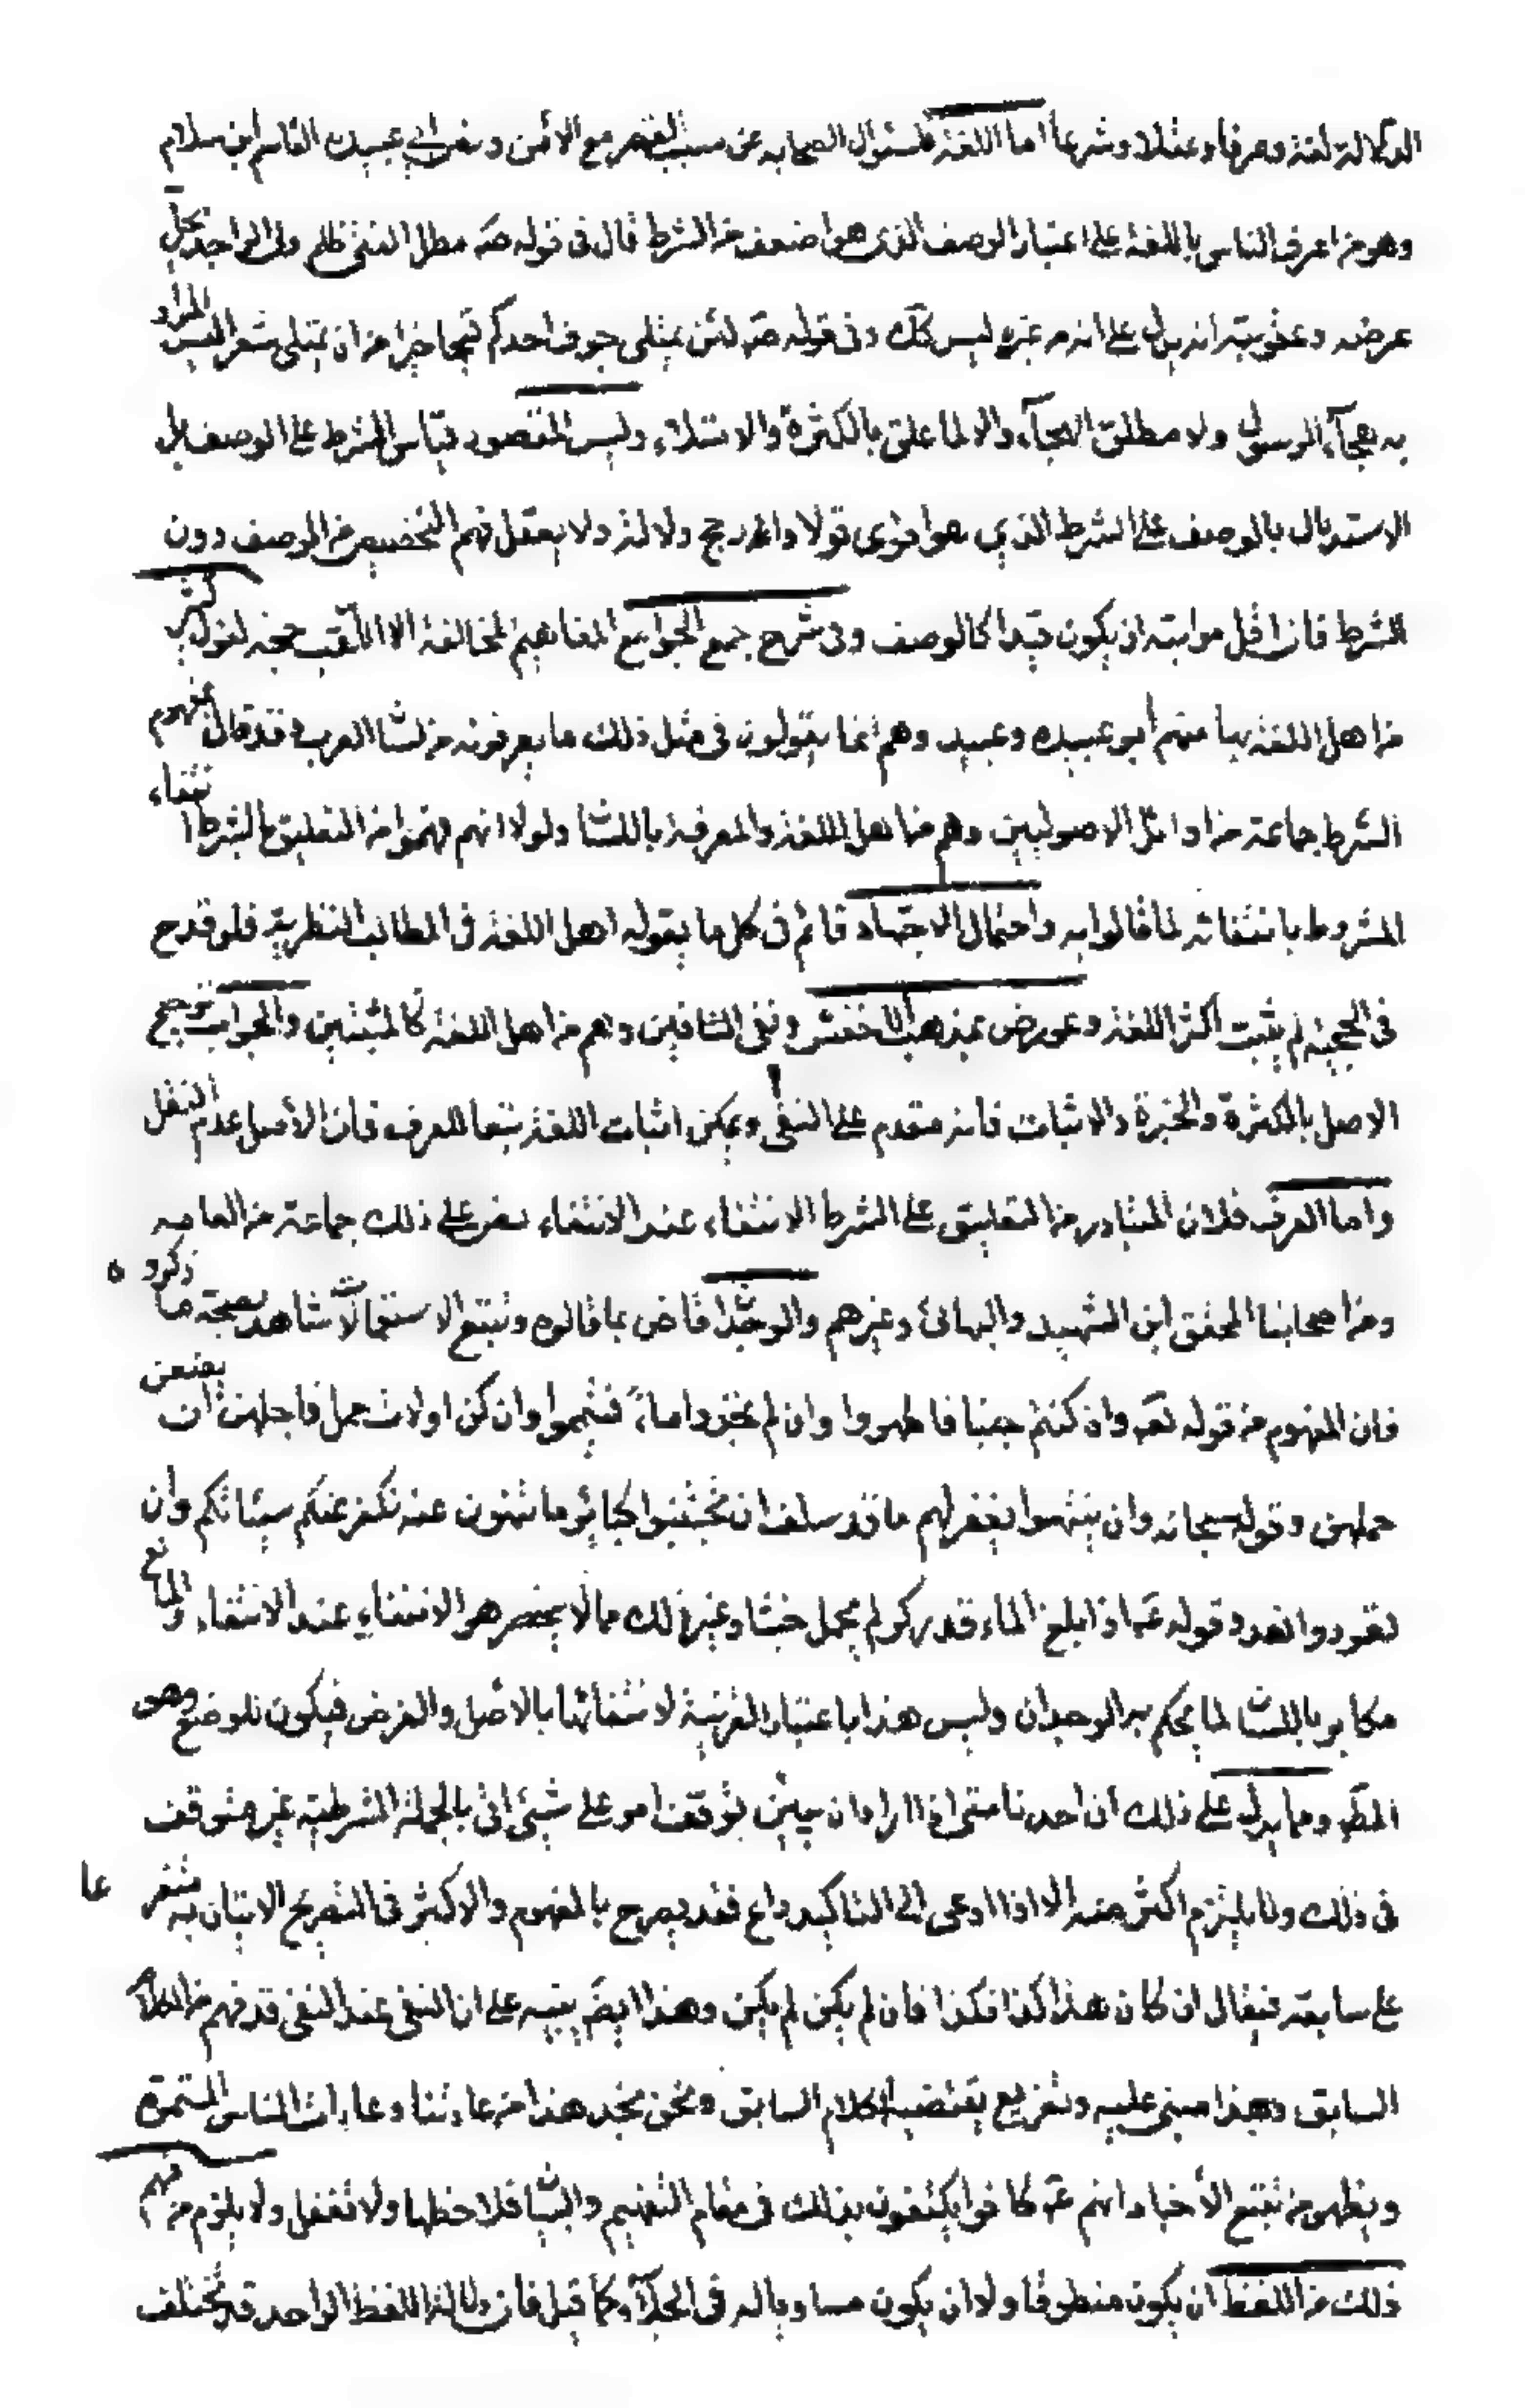 الدلالة لغة وعرفا وعقلا وشرعا اما اللغة فلسئوال الصحابه عن سبب القصر مع الامن ونص ابي عبيده القاسم ابن سلام
وهو من اعرف الناس باللغة على اعتبار الوصف الذى هو اضعف من الشرط قال فى قوله صَه مطل الغنى ظلم ولى الواجد يحلّ
عرضه وعقوبته انه يدل على ان من غيره ليس كك وفى قوله صَه لئن يمتلى جوف احدكم قيحا خيرا من ان يمتلى شعر اليس المراد
به هجآء الرسول ولا مطلق الهجآء والا لما علق بالكثرة والامتلاء وليس المقصود قياس الشرط على الوصف بل
الاستدلال بالوصف على الشرط الذي هو اقوى قولا وارجح دلالة ولا يعقل فهم التخصيص من الوصف دون
الشرط فان اقل مراتبته ان يكون قيدا كالوصف وفى شرح جمع الجوامع المفاهيم المخالفة الا اللقب حجة لغة لقول كثير
من اهل اللغة بها منهم أبو عبيده وعبيد وهم انما يقولون فى مثل ذلك ما يعرفونه من لسا العرب وقد قال بمفهوم
الشرط جماعة من اوائل الاصوليين وهم من اهل اللغة والمعرفة باللسا ولولا انهم فهموا من التعليق بالشرط انتفاء
المشروط بانتفائه لما قالوا به واحتمال الاجتهاد قائم فى كل ما يقوله اهل اللغة فى المطالب النظرية فلو قدح
فى الحجية لم يثبت اكثر اللغة وعورض بمذهب الاخفش ونفى النافين وهم من اهل اللغة كالمثبتين والجواب ترجيح
الاصل بالكثرة والخبرة والاثبات فانه متقدم على النفى ويمكن اثبات اللغة تبعا للعرف فان الأصل عدم النقل
واما العرف فلان المتبادر من التعليق على الشرط الانتفاء عند الانتفاء نص على ذلك جماعة من العامه
ومن اصحابنا المحقق ابن الشهيد والبهائى وغيرهم والوجدا قاض بما قالوه وتتبع الاستعمالات شاهد بصحة ما ذكروه
فان المفهوم من قوله تعَ وان كنتم جنبا فاطهروا وان لم تجدوا ماءً فتيمموا وان كن اولات حمل فاجلهن ان يضعن
حملهن وقوله سبحانه وان ينتهوا يغفر لهم ما قد سلف ان تجتنبوا كبائر ما تنهون عنه نكفر عنكم سيئاتكم وان
تعودوا نعد وقوله عَه اذا بلغ الماء قدر كر لم يحمل خبثا وغير ذلك مما لا يحصر هو الانتفاء عند الانتفاء والمانع
مكابر باللسا لما يحكم به الوجدان وليس هذا باعتبار القرينة لانتفائها بالاصل والفرض فيكون للوضع وهو
المطَ ومما يدل على ذلك ان احدنا متى اذا اراد ان يبين توقف امر على شيئ اتى بالجملة الشرطيه غير متوقف
فى ذلك ولا يلتزم اكثر منه الا اذا ادعى الى التاكيد داع فقد يصرح بالمفهوم والاكثر فى التصريح الاتيان به متفرعا
على سابقه فيقال ان كان هذا كذا فكذا فان لم يكن لم يكن وهذا ايضَ ينبه على ان النفى عند النفى قد فهم من الكلام
السابق وهذا مبنى عليه وتفريع يقتضيه الكلام السابق ونحن نجد هذا من عادتنا وعادات الناس المستمرة
ويظهر من تتبع الأخبار انهم عَه كانوا يكتفون بذلك فى مقام التفهيم والبيا فلاحظها ولا تغفل ولا يلزم من فهم
ذلك من اللفظ ان يكون منطوقا ولا ان يكون مساويا له فى الجلآء كما قيل فان دلالة اللفظ الواحد قد تختلف